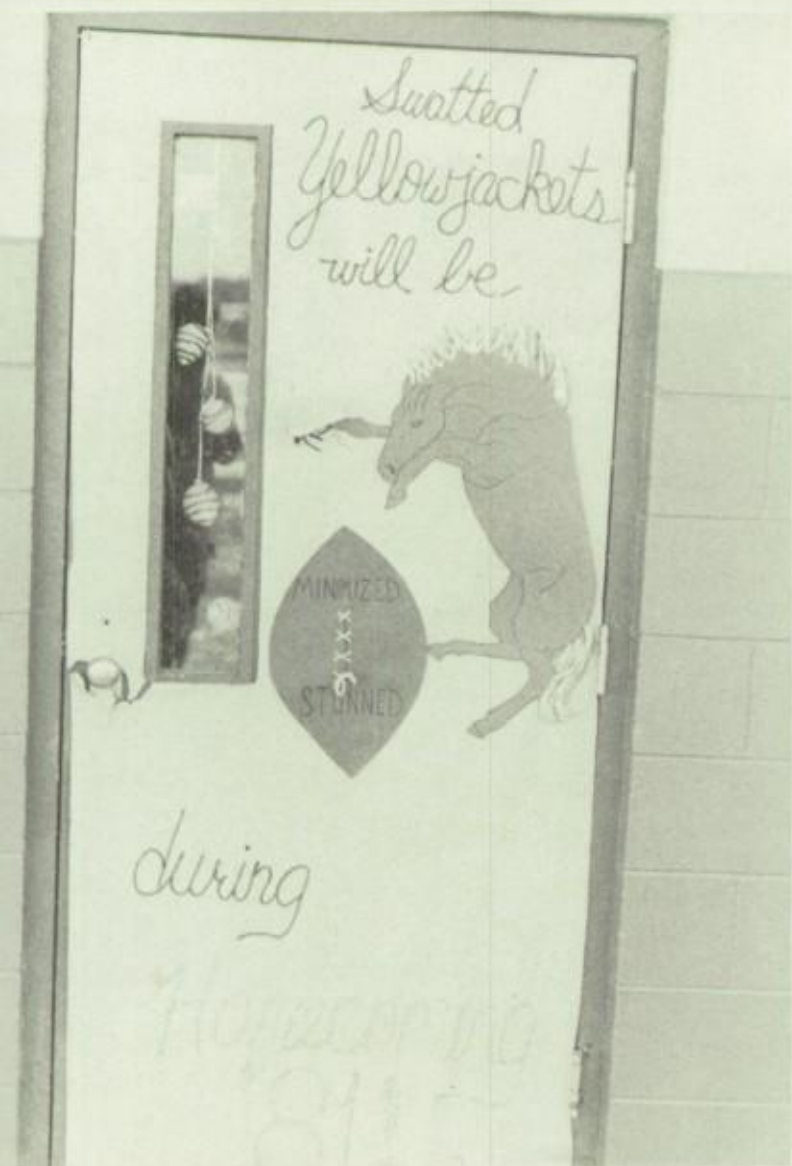 Swatted
Yellowjackets
will be
MINIMIZED
STUNNED
during
Homecoming
81